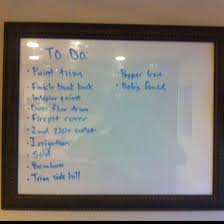 To Do:
• Paint trim
• Finish back deck
• Interior paint
• Over floor trim
• Firepit cover
• 2nd 220v outlet
• Irrigation
• Sod
• Bamboo
• Trim side hill
• Pepper tree
• Bob's fence